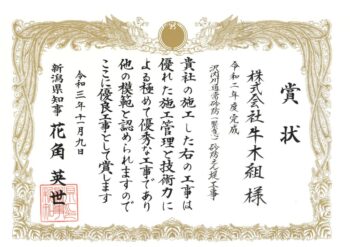 賞状
株式会社 牛木組 様
令和二年度完成
沢沢川通常砂防
砂防えん堤工事
貴社の施工した右の工事は
優れた施工管理と技術力に
よる極めて優秀な工事であり
他の模範と認められますので
ここに優良工事として賞します
令和三年十一月九日
新潟県知事 花角英世